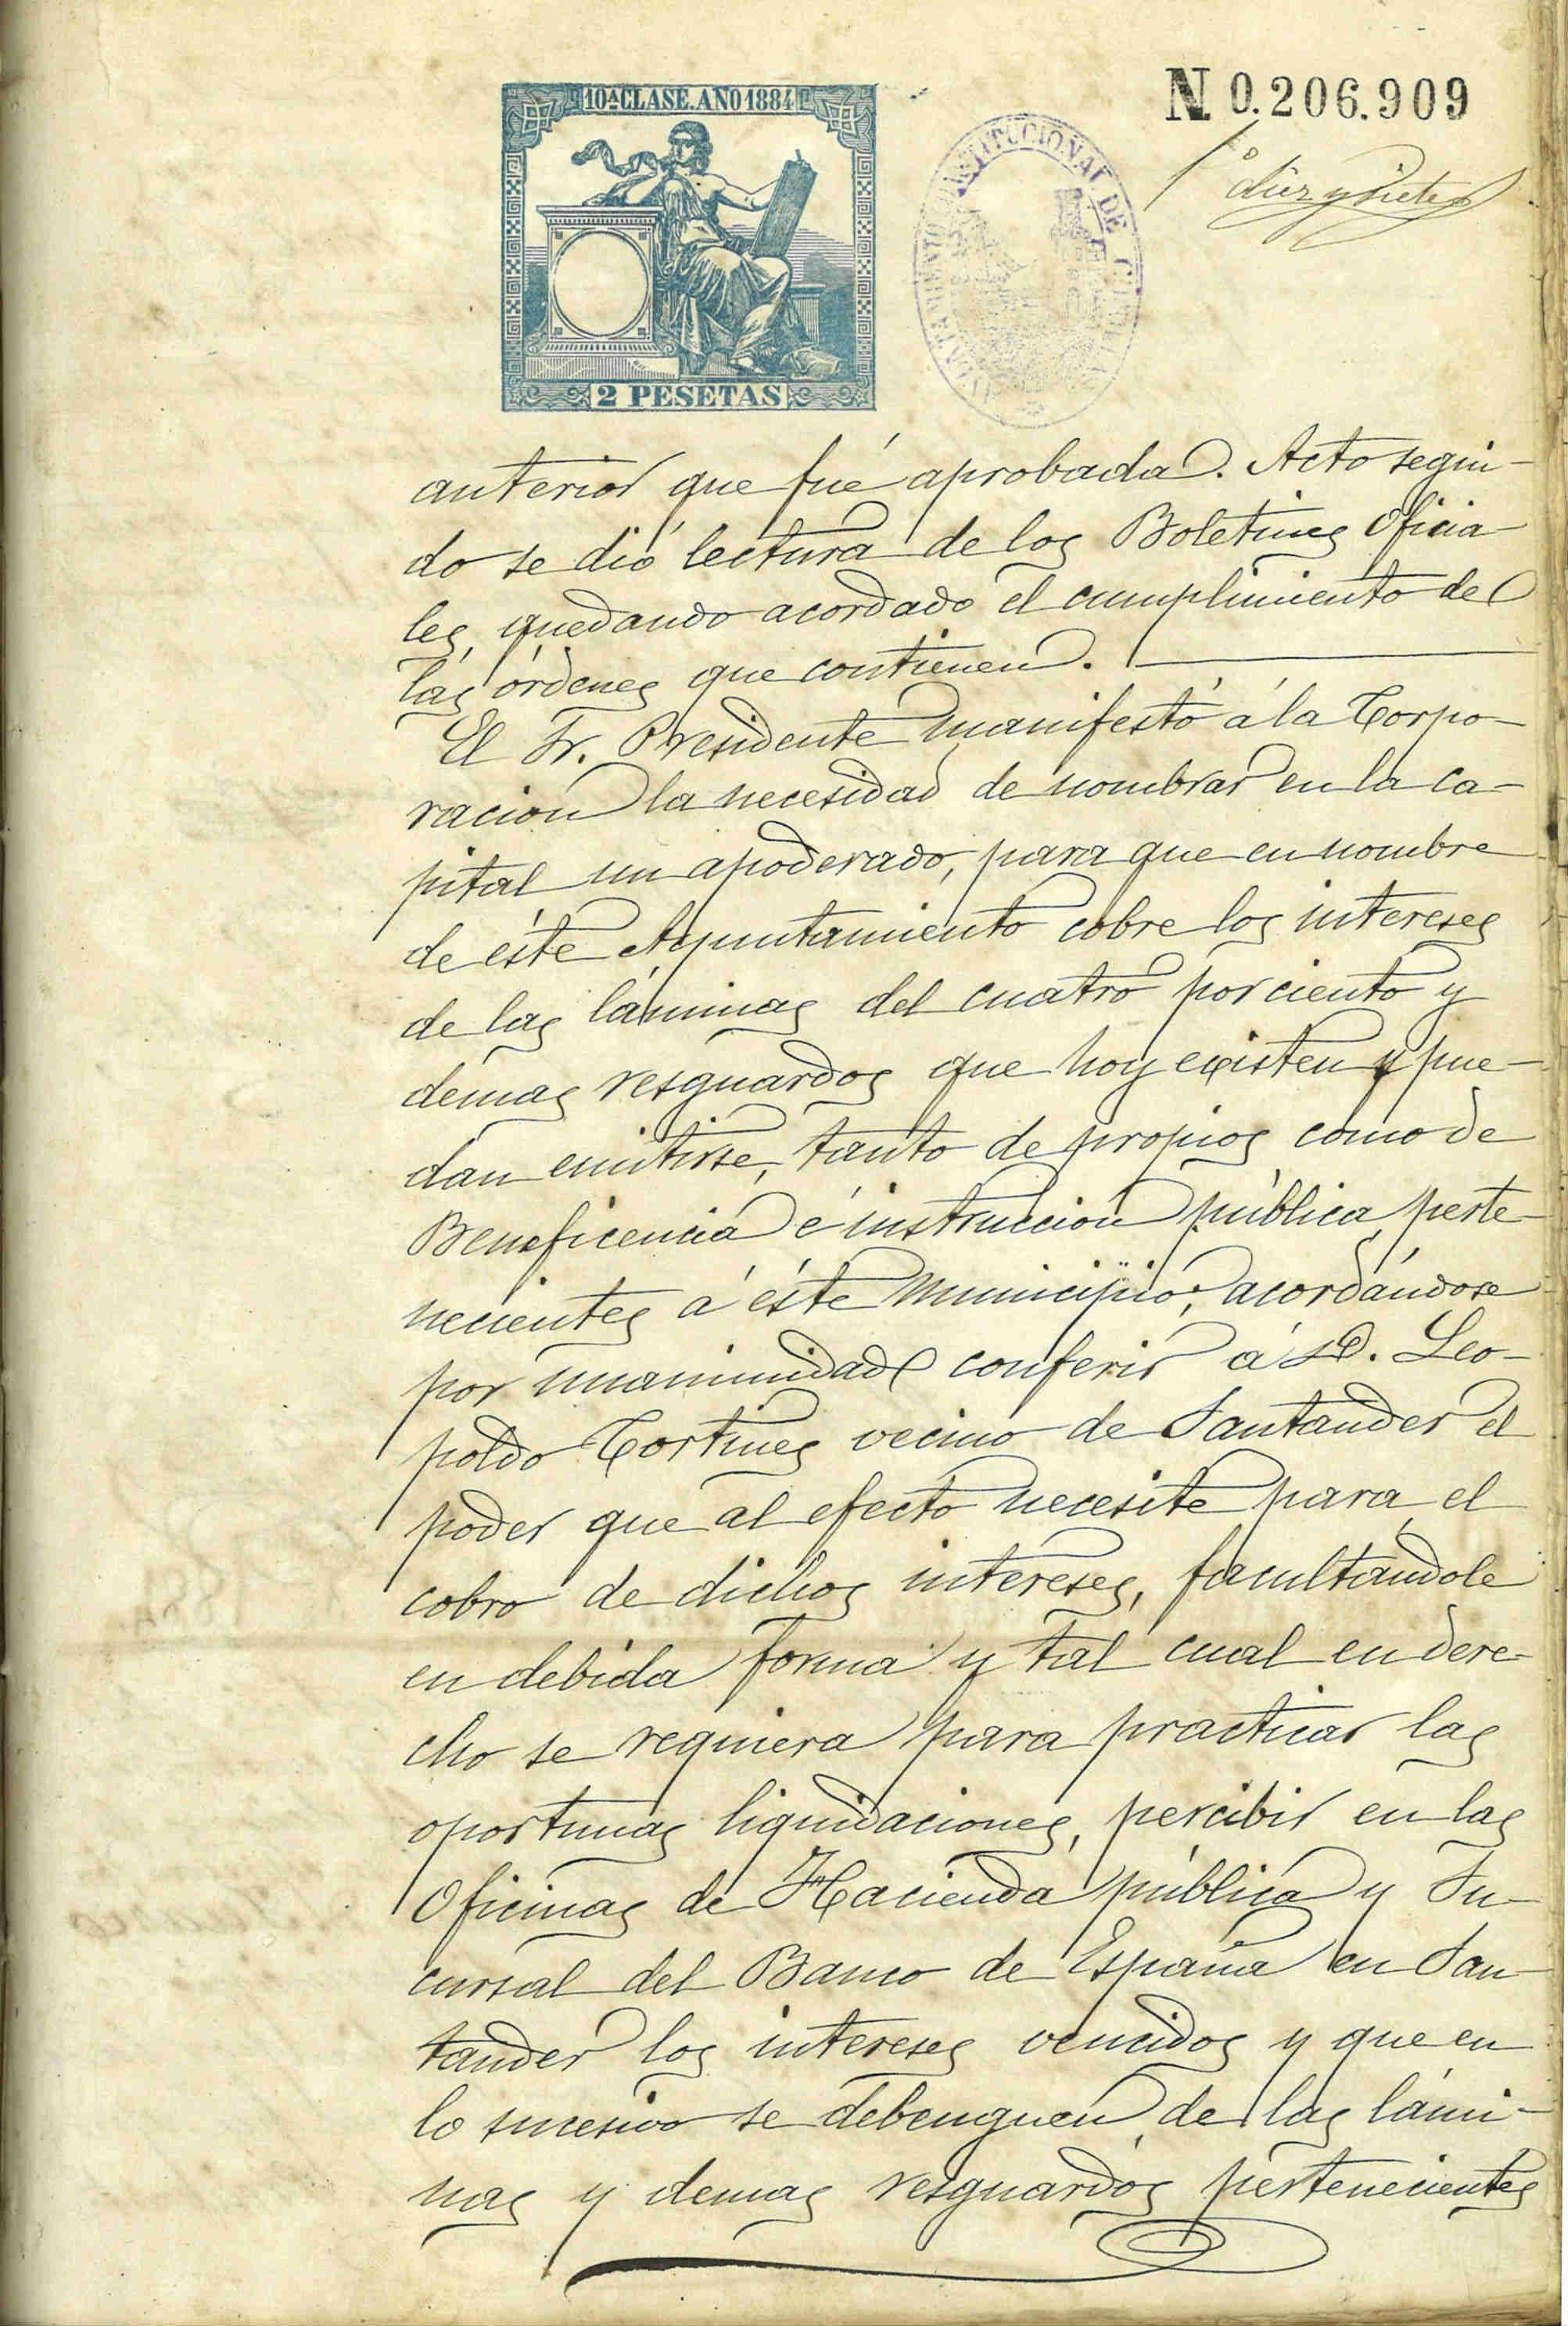 10ª CLASE. AÑO 1884
N 0.206.909
diez y siete
CONSTITUCIONAL DE
2 PESETAS
anterior que fué aprobada. Acto segui-
do se dió lectura de los Boletines Oficia-
les, quedando acordado el cumplimiento de
las órdenes que contienen.
El Sr. Presidente manifestó á la Corpo-
racion la necesidad de nombrar en la ca-
pital un apoderado, para que en nombre
de éste Ayuntamiento cobre los intereses
de las láminas del cuatro por ciento y
demas resguardos que hoy existen y pue-
dan emitirse, tanto de propios como de
Beneficencia é instruccion pública, perte-
necientes á éste Municipio; acordándose
por unanimidad conferir á D. Leo-
poldo Cortines vecino de Santander el
poder que al efecto necesite para el
cobro de dichos intereses, facultandole
en debida forma y tal cual en dere-
cho se requiera para practicar las
oportunas liquidaciones, percibir en las
Oficinas de Hacienda pública y Su-
cursal del Banco de España en San-
tander los intereses vencidos y que en
lo sucesivo se debenguen, de las lámi-
nas y demas resguardos pertenecientes